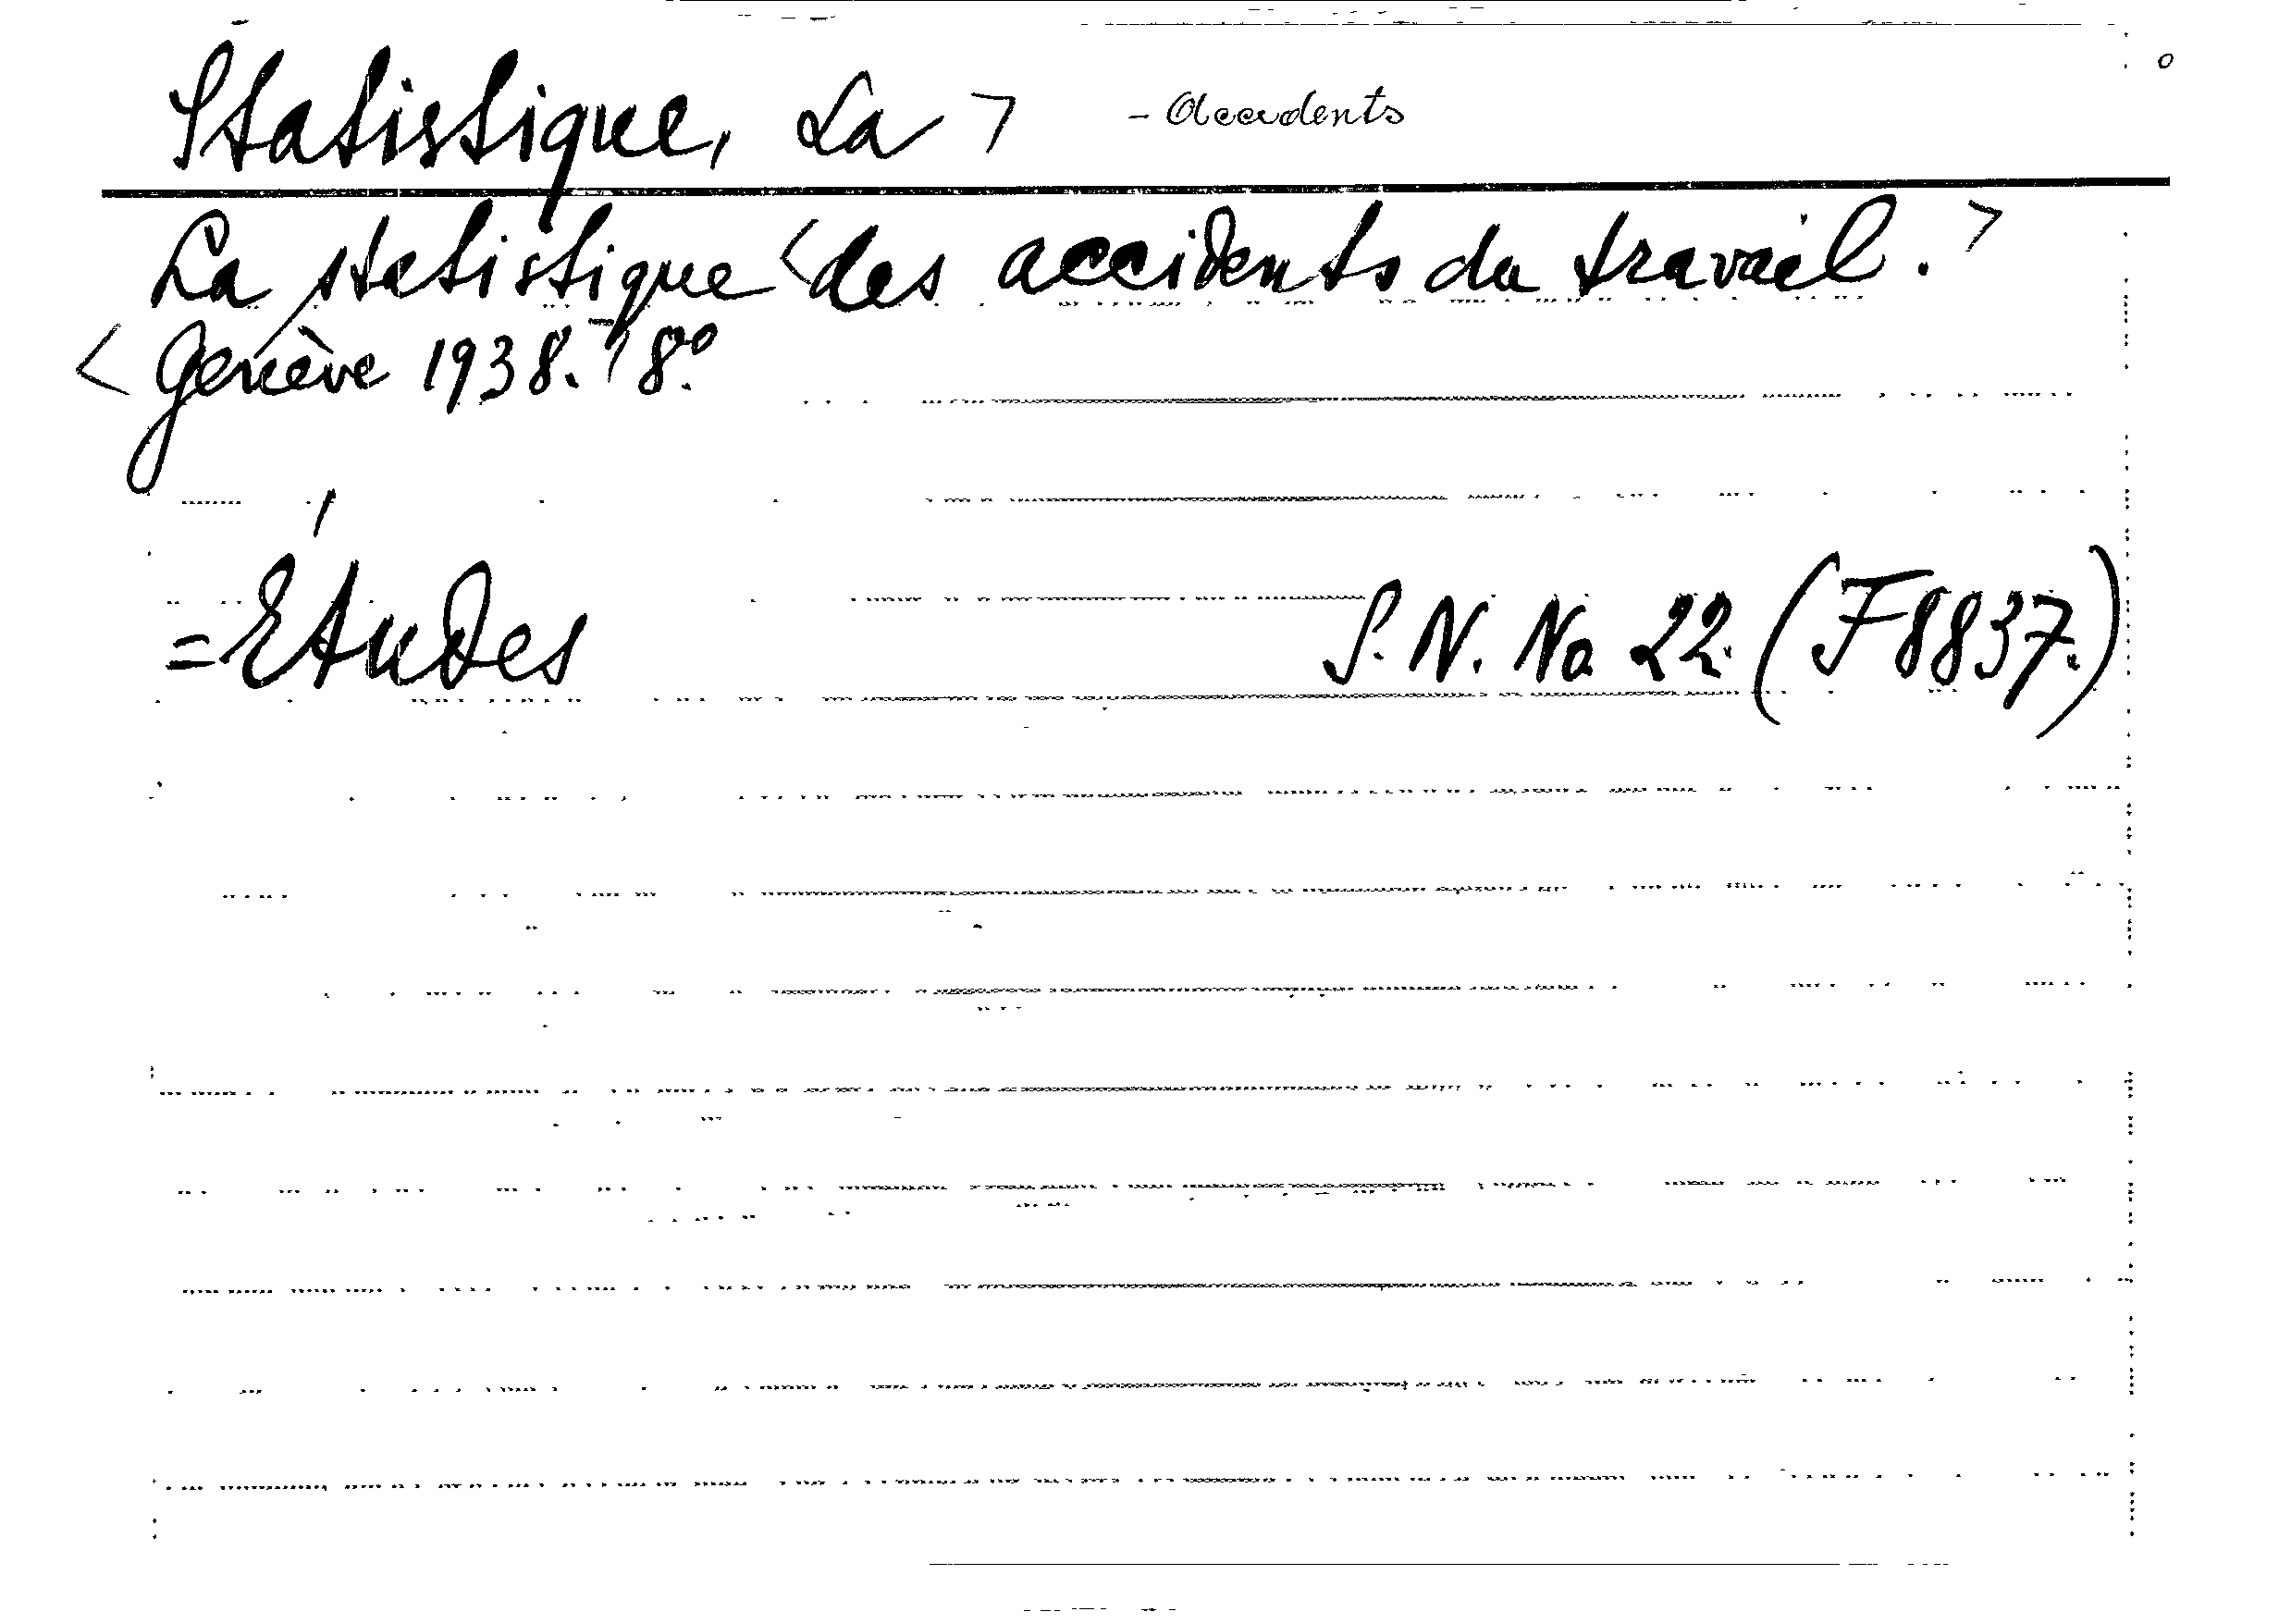 Statistique, La > - Accidents
La statistique <des accidents du travail.>
<Genève 1938.> 8º.
=Études S. N. No 22. (F8837.)